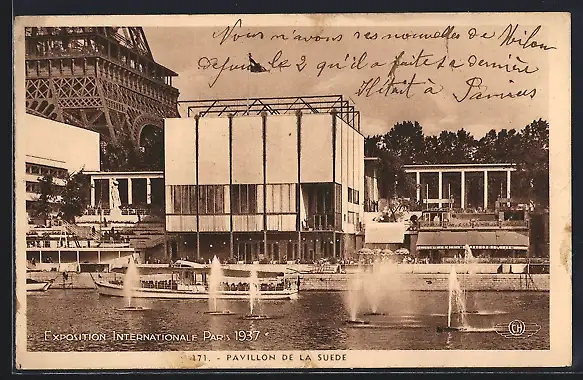 Nous n'avons pas nouvelles de
depuis le 2 qu'il a faite sa dernière
Il était à Pamiers
EXPOSITION INTERNATIONALE PARIS 1937
CH
171. - PAVILLON DE LA SUEDE